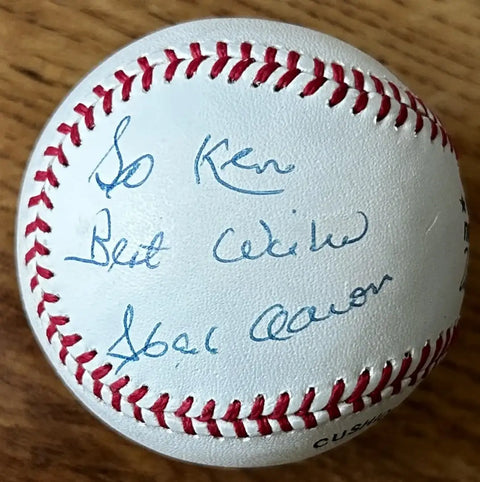 To Ken
Best Wishes
Hank Aaron
CUSHIO